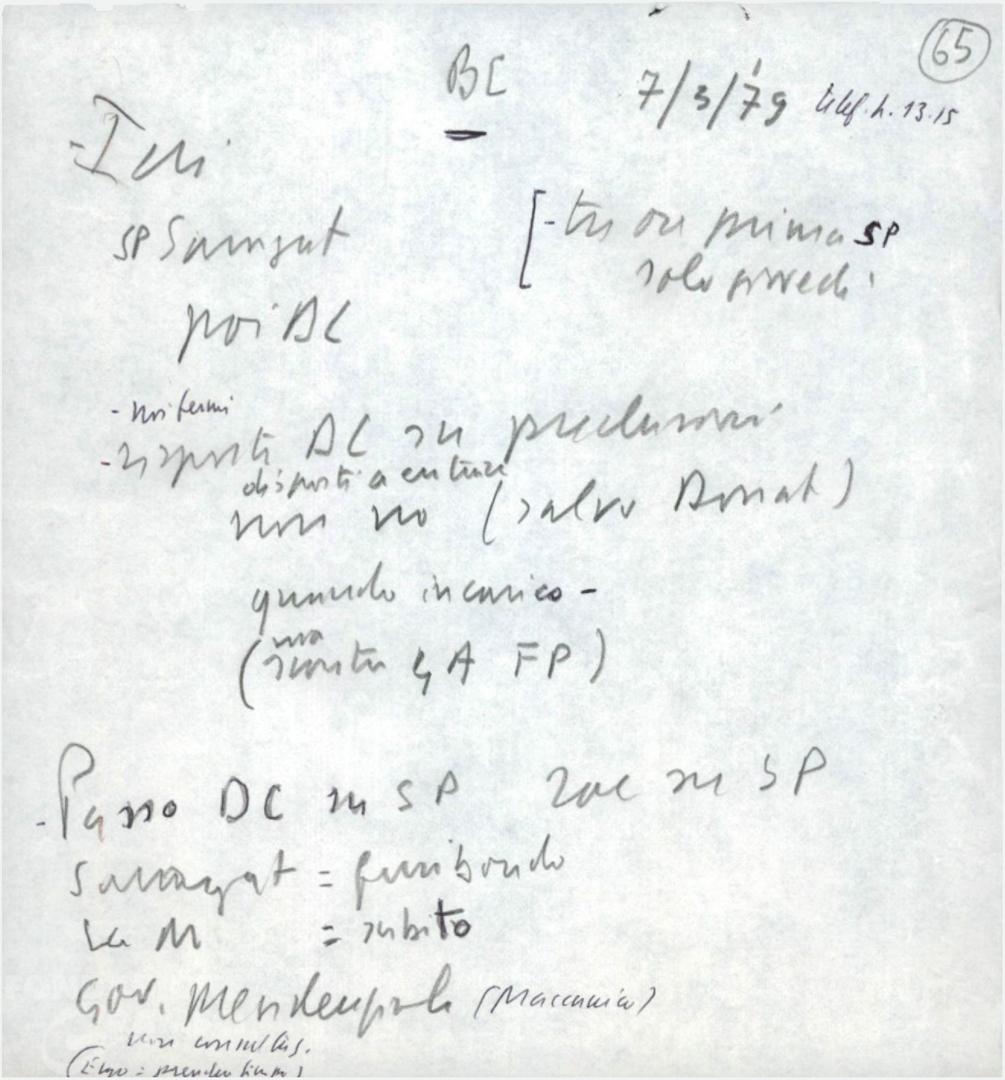 65
BC
7/3/79 telef. h. 13.15
- Ieri
SP Saragat
poi DC
[- tu ou prima SP
solo
- noi fermi
- risposti DC su preclusioni
disposti a entrare
non no (salvo Donat)
quando incarico -
ma
(scritu GA FP)
- Passo DC su SP Zac su SP
Saragat = furibondo
La M = subito
Gov. Presidenziale (Maccanico)
non consultaz.